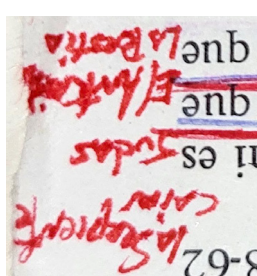 -62 la Serpiente
Cain
ni es Judas
que El Anti
que La Bestia